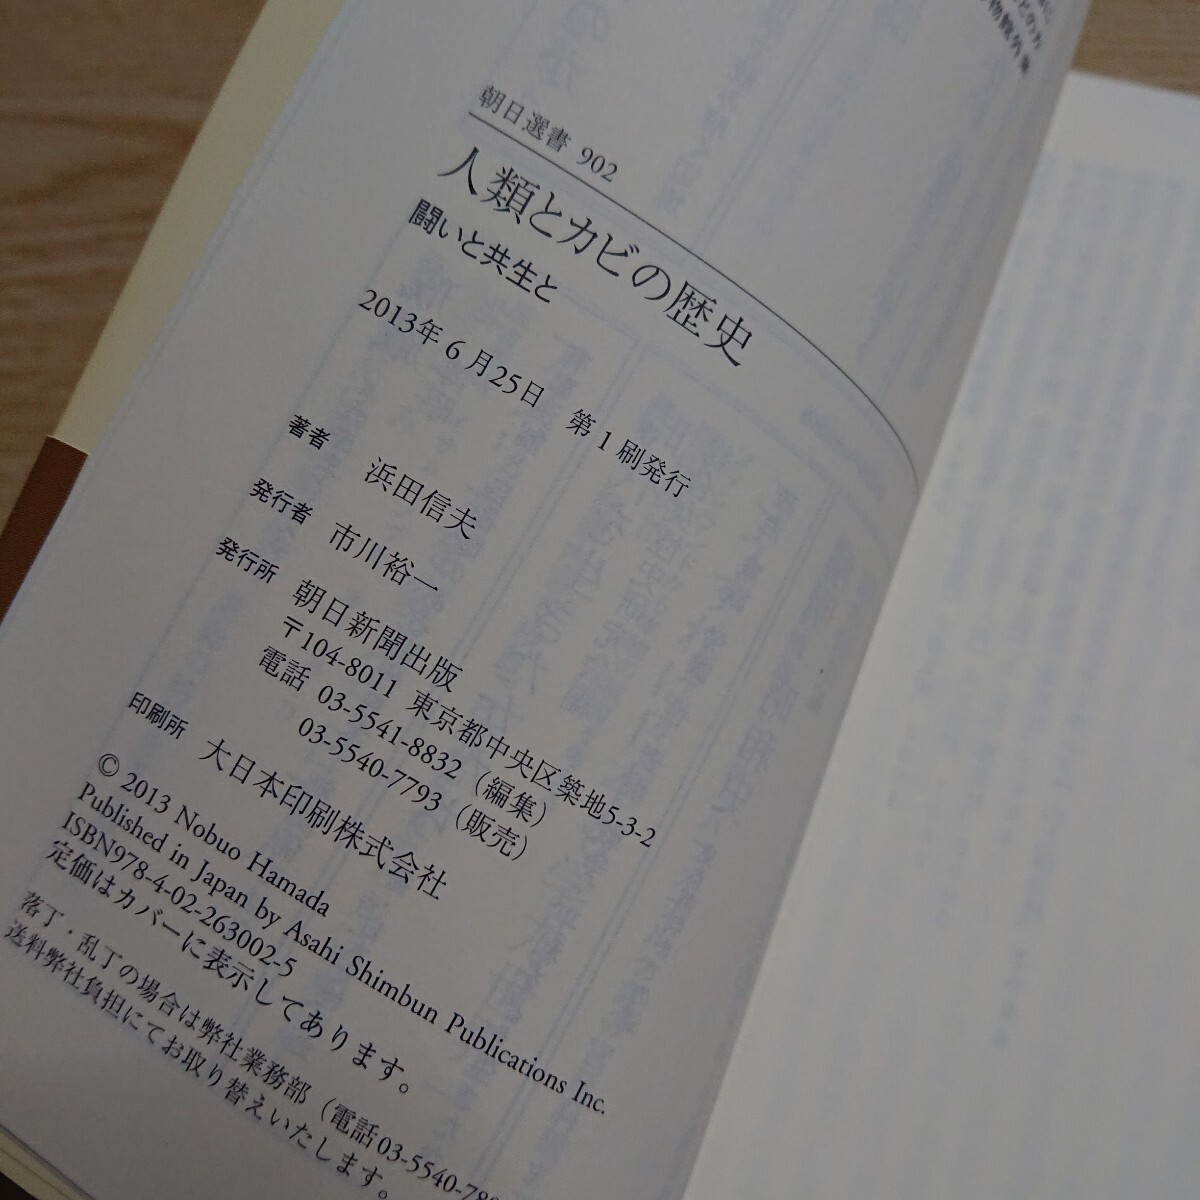 朝日選書 902
人類とカビの歴史
闘いと共生と
2013年6月25日 第1刷発行
著者 浜田信夫
発行者 市川裕一
発行所 朝日新聞出版
〒104-8011 東京都中央区築地5-3-2
電話 03-5541-8832（編集）
03-5540-7793（販売）
印刷所 大日本印刷株式会社
© 2013 Nobuo Hamada
Published in Japan by Asahi Shimbun Publications Inc.
ISBN978-4-02-263002-5
定価はカバーに表示してあります。
落丁・乱丁の場合は弊社業務部（電話03-5540-780
送料弊社負担にてお取り替えいたします。